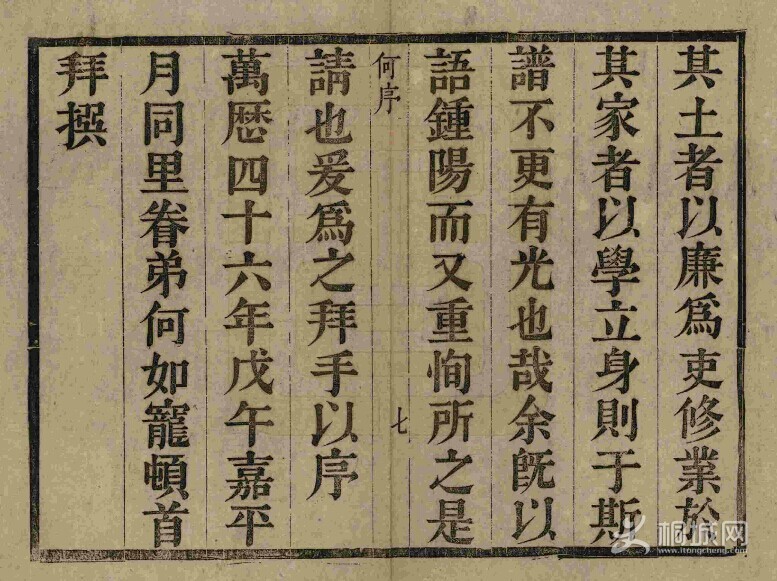 其土者以廉爲吏修業於
其家者以學立身則于斯
譜不更有光也哉余旣以
語鍾陽而又重恂所之是
何序
七
請也爰爲之拜手以序
萬歷四十六年戊午嘉平
月同里眷弟何如寵頓首
拜撰
桐城网
www.itongcheng.com